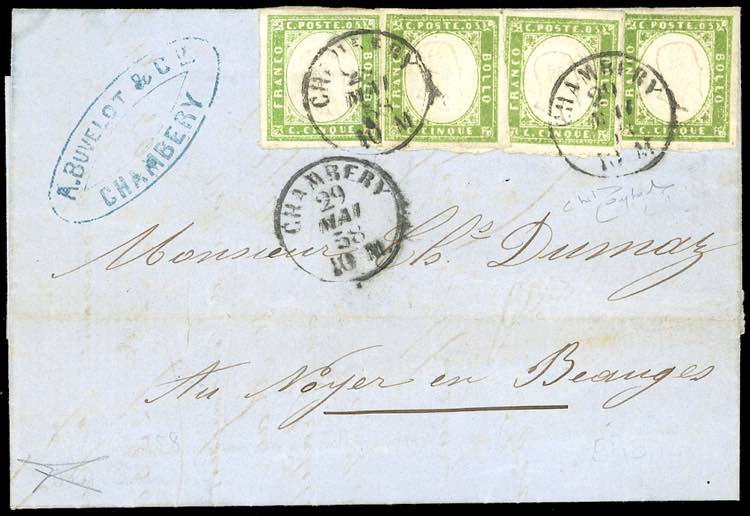 C. POSTE. 05
FRANCO
BOLLO
C. CINQUE
C. POSTE. 05
FRANCO
BOLLO
C. CINQUE
C. POSTE. 05
FRANCO
BOLLO
C. CINQUE
C. POSTE. 05
FRANCO
BOLLO
C. CINQUE
A. BUVELOT & Cie
CHAMBERY
CHAMBERY
29
MAI
10 M
CHAMBERY
29
MAI
58
10 M
CHAMBERY
29
MAI
58
10 M
Monsieur Ch.s Dumaz
Au Noyer en Beauges